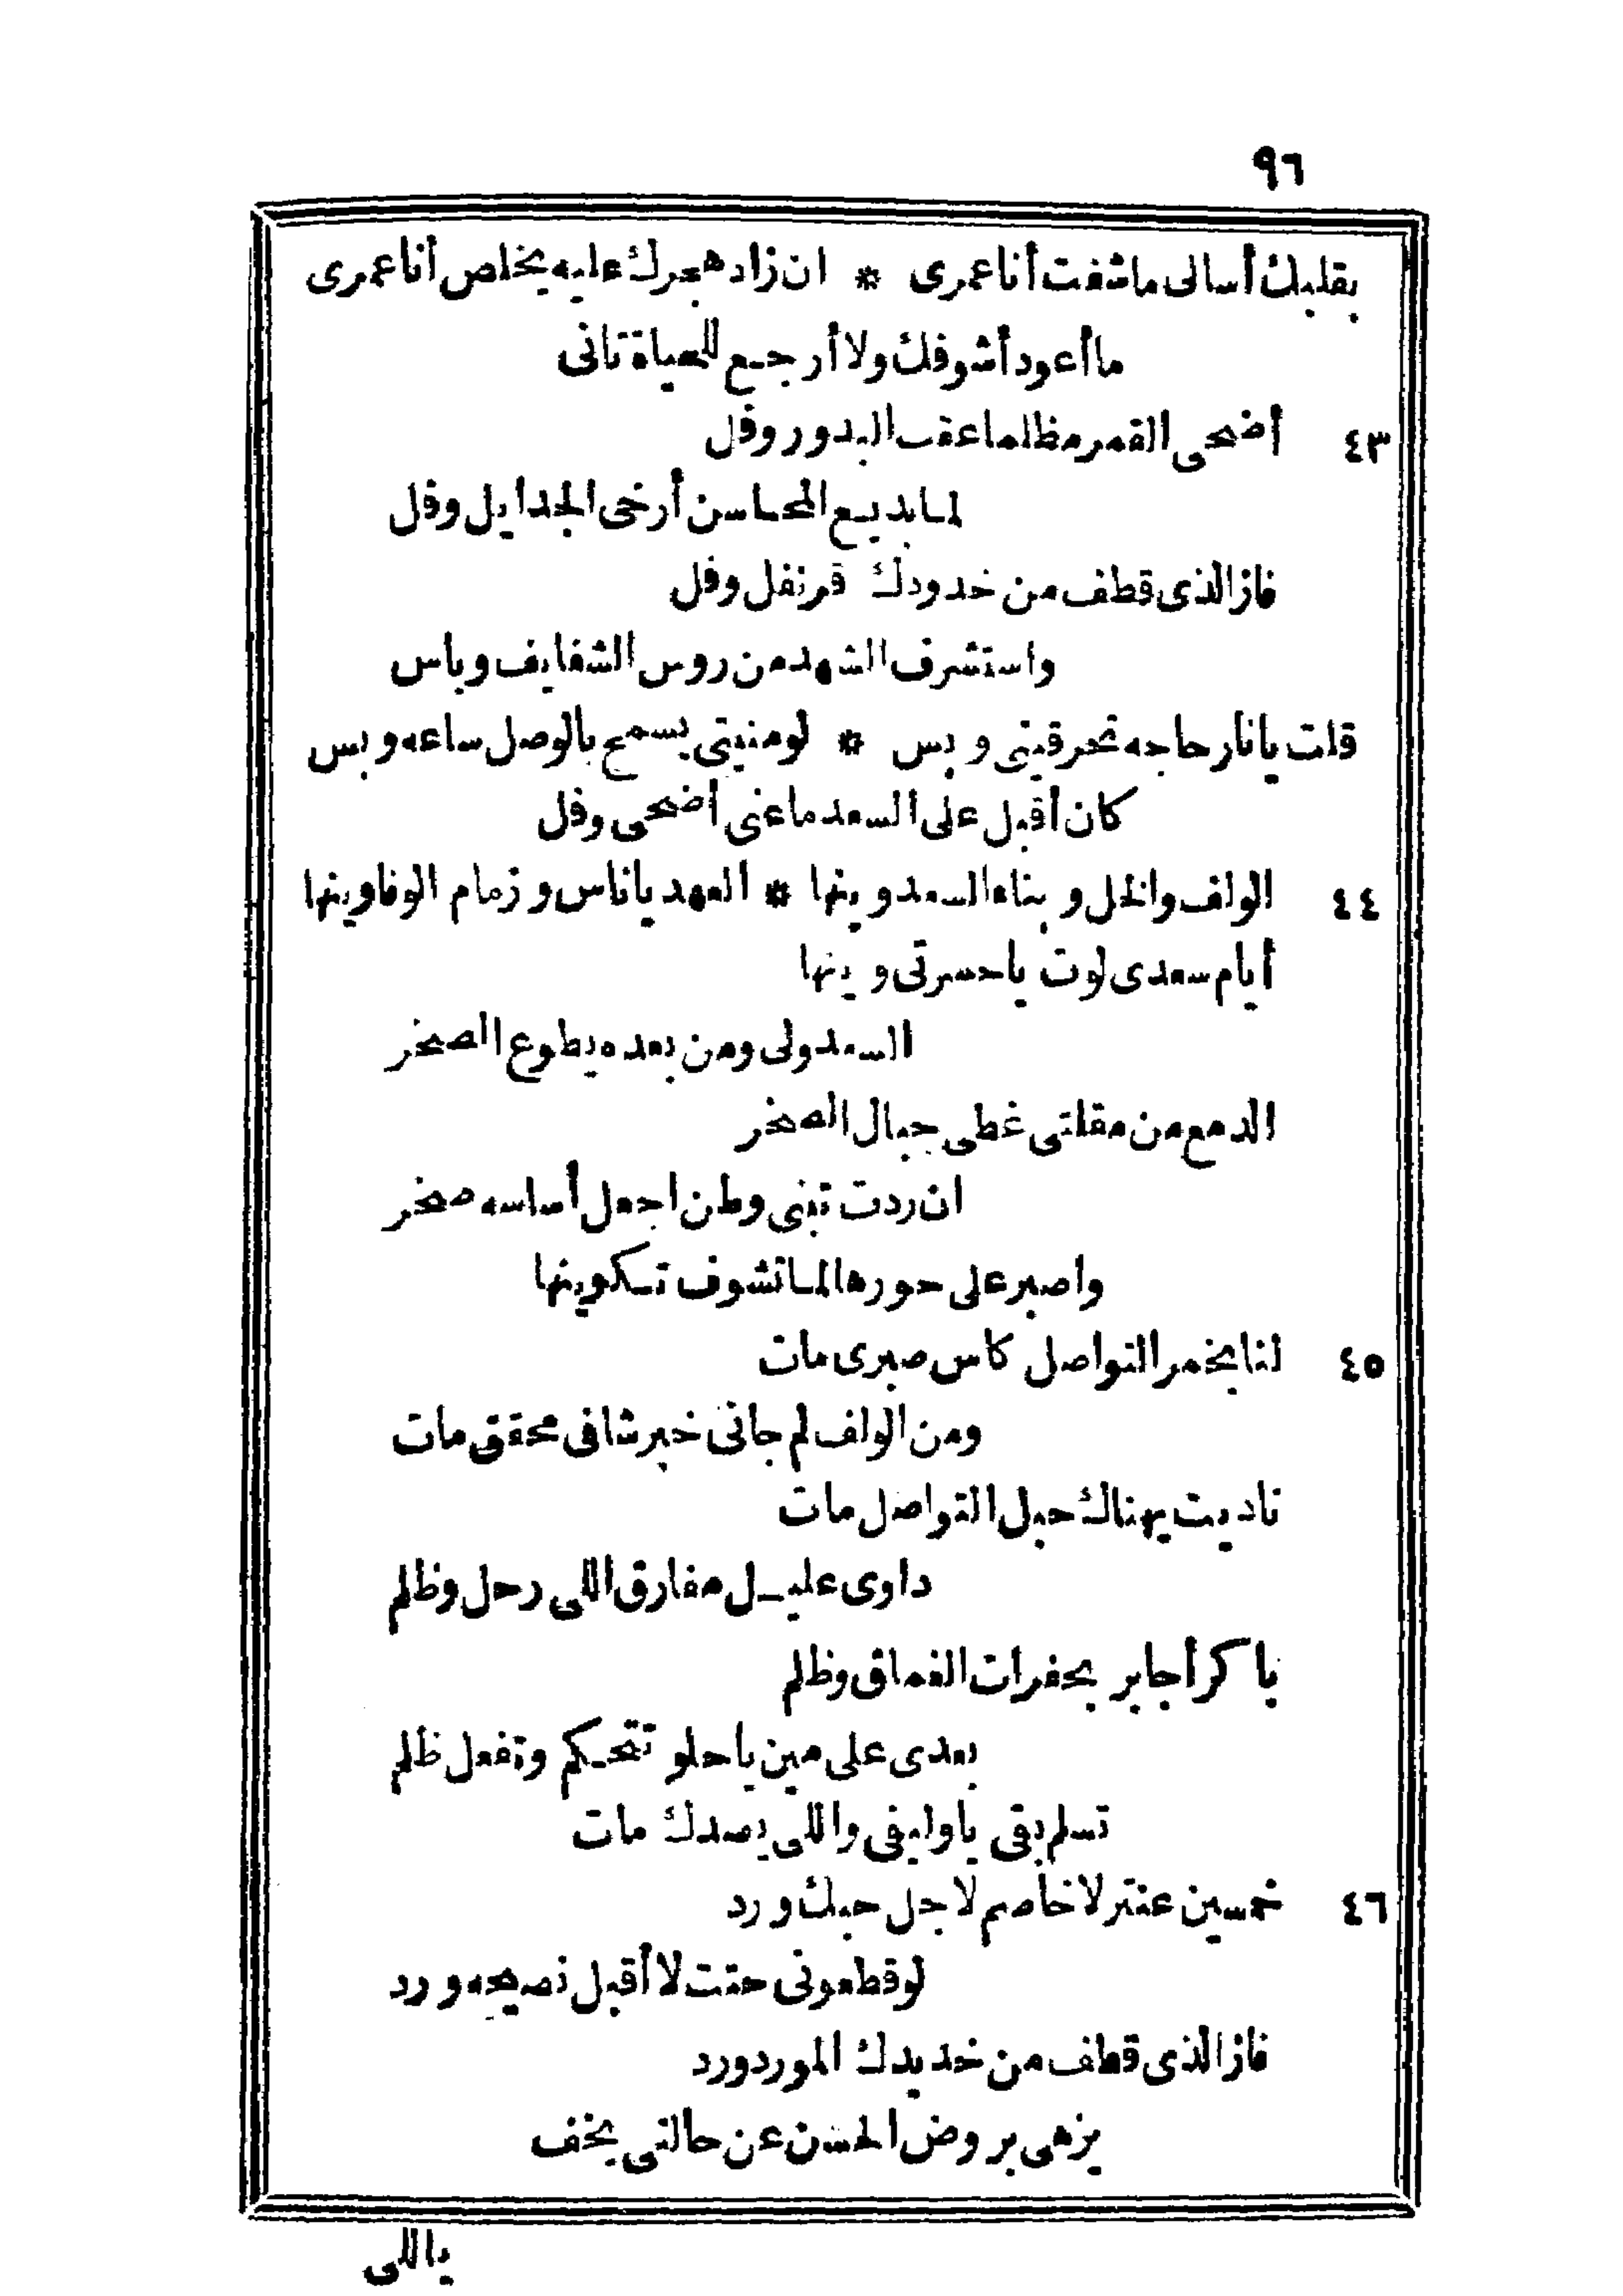 ٩٦
بقلبك أسالى ماشفت أناعمرى * ان زاد هجرك عليه يخلص أناعمرى
ما أعود أشوفك ولا أرجع للحياة تانى
٤٣ أضحى القمر مظلما عقب البدور وفل
لما بديع المحاسن أرخى الجدايل وفل
فاز الذى قطف من خدودك قرنفل وفل
واستشرف الشهد من روس الشفايف وباس
قلت يانار حاجه تحرقينى وبس * لومنيتى يسمح بالوصل ساعه وبس
كان أقبل على السعد ماعنى أضحى وفل
٤٤ الولف والخل وبناء السعد وينها * العهد ياناس وزمام الوفا وينها
أيام سعدى لوت ياحسرتى وينها
السعد ولى ومن بعده يطوع الصخر
الدمع من مقلتى غطى جبال الصخر
ان ردت تبنى وطن اجعل أساسه صخر
واصبر على حورها لما تشوف تكوينها
٤٥ لنا بخمر التواصل كاس صبرى مات
ومن الولف لم جانى خبر شافى محقق مات
ناديت يهناك حبل التواصل مات
داوى عليل مفارق اللى رحل وظلم
باكر أجابر بحفرات الغماق وظلم
بعدى على مين ياحلو تتحكم وتفعل ظلم
تسلم بقى ياوليفى واللى يصدك مات
٤٦ خمسين عنتر لاخاصم لاجل حبك ورد
لوقطعونى حتت لا أقبل نصيحه ورد
فاز الذى قطف من خديدك المورد ورد
يزهى بروض الحسن عن حالتى يخف
ياللى